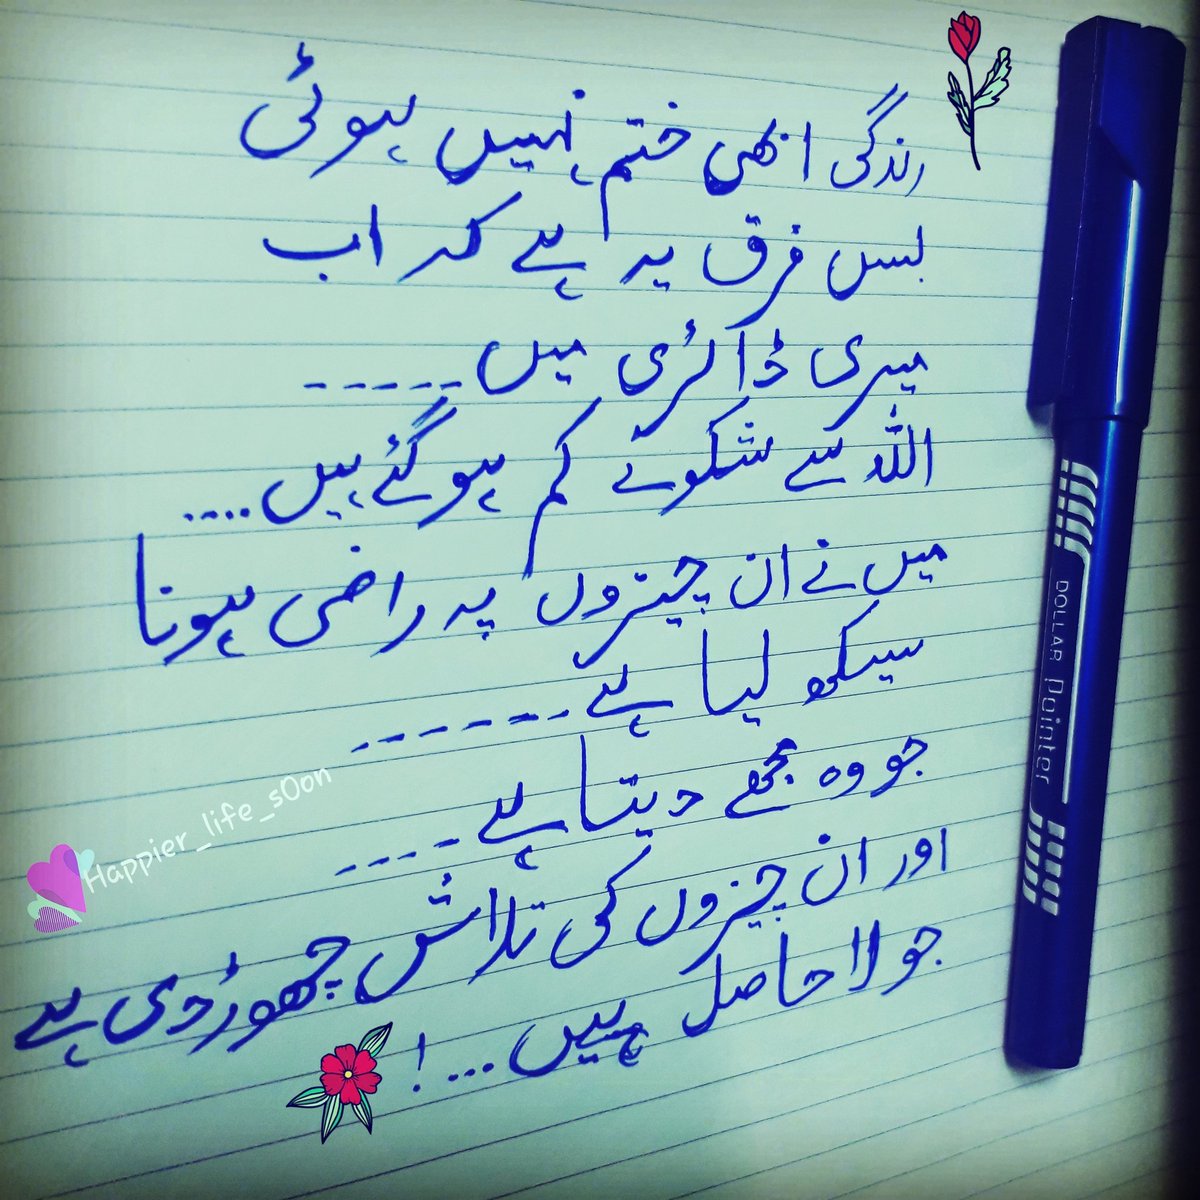 زندگی ابھی ختم نہیں ہوئی
بس فرق یہ ہے کہ اب
میری ڈائری میں -----
اللہ سے شکوئے کم ہو گئے ہیں....
میں نے ان چیزوں پہ راضی ہونا
سیکھ لیا ہے ------
جو وہ مجھے دیتا ہے ----
اور ان چیزوں کی تلاش چھوڑ دی ہے
جو لا حاصل ہیں...!
Happier_life_s0on
DOLLAR Pointer